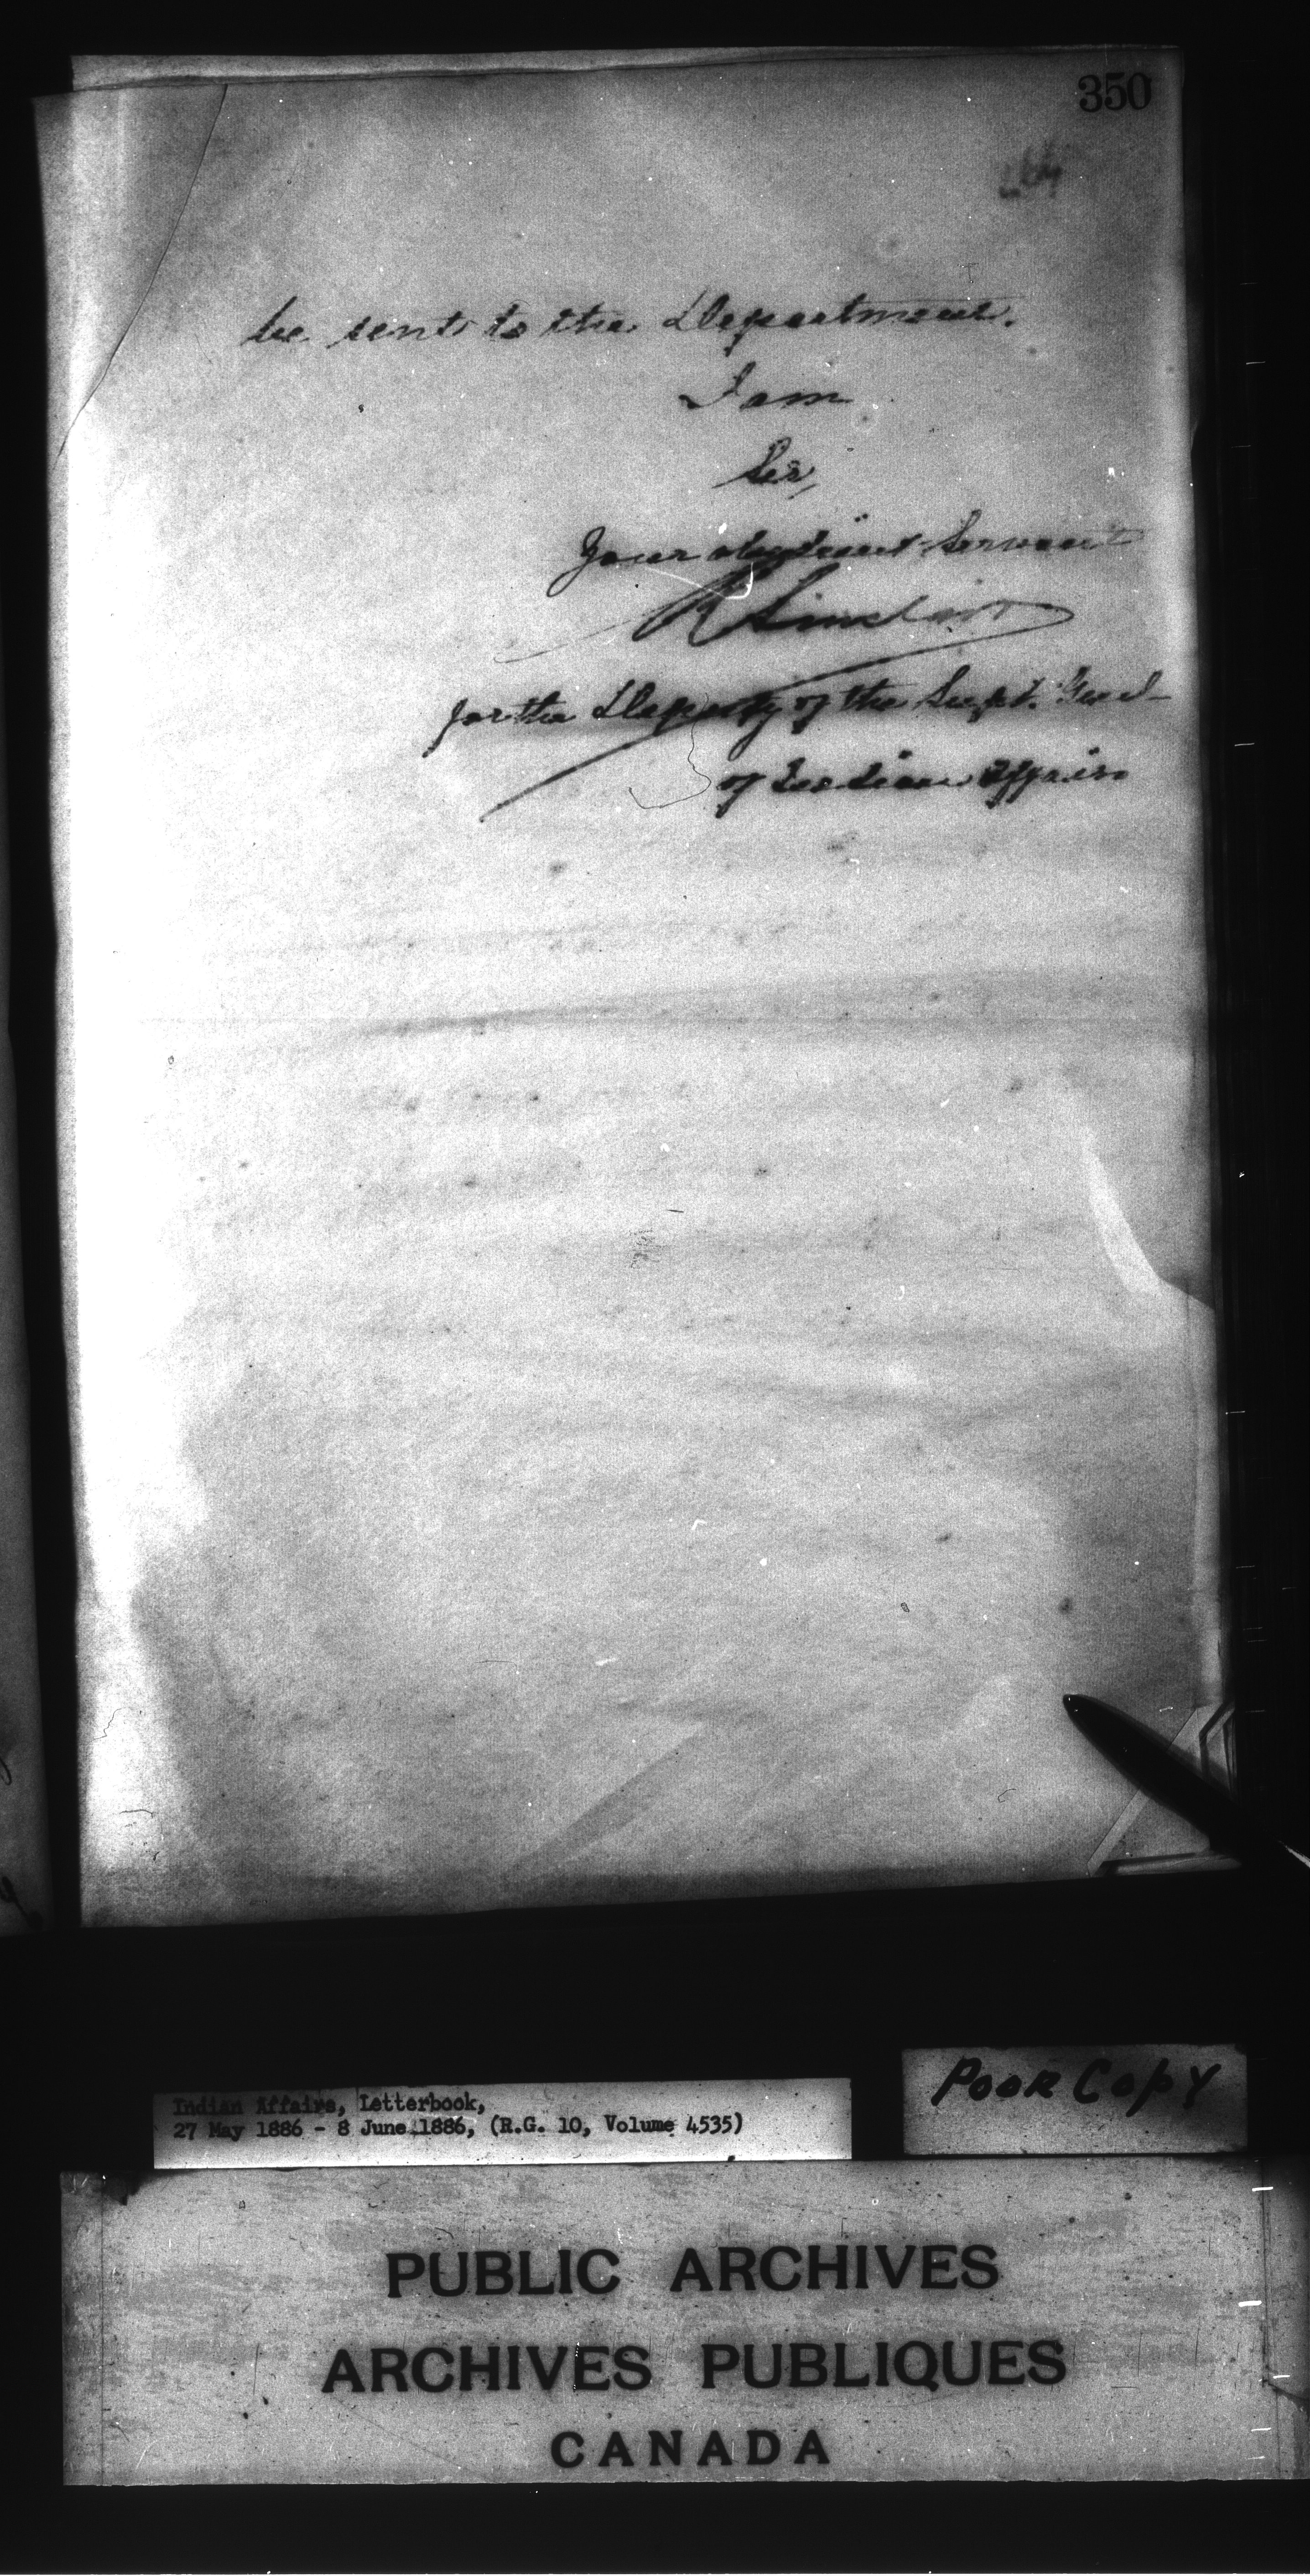 350
be sent to the Department.
I am
Sir,
Your obedient Servant
R Sinclair
for the Deputy of the Supt. Genl
of Indian Affairs
Poor Copy
Indian Affairs, Letterbook,
27 May 1886 - 8 June 1886, (R.G. 10, Volume 4535)
PUBLIC ARCHIVES
ARCHIVES PUBLIQUES
CANADA